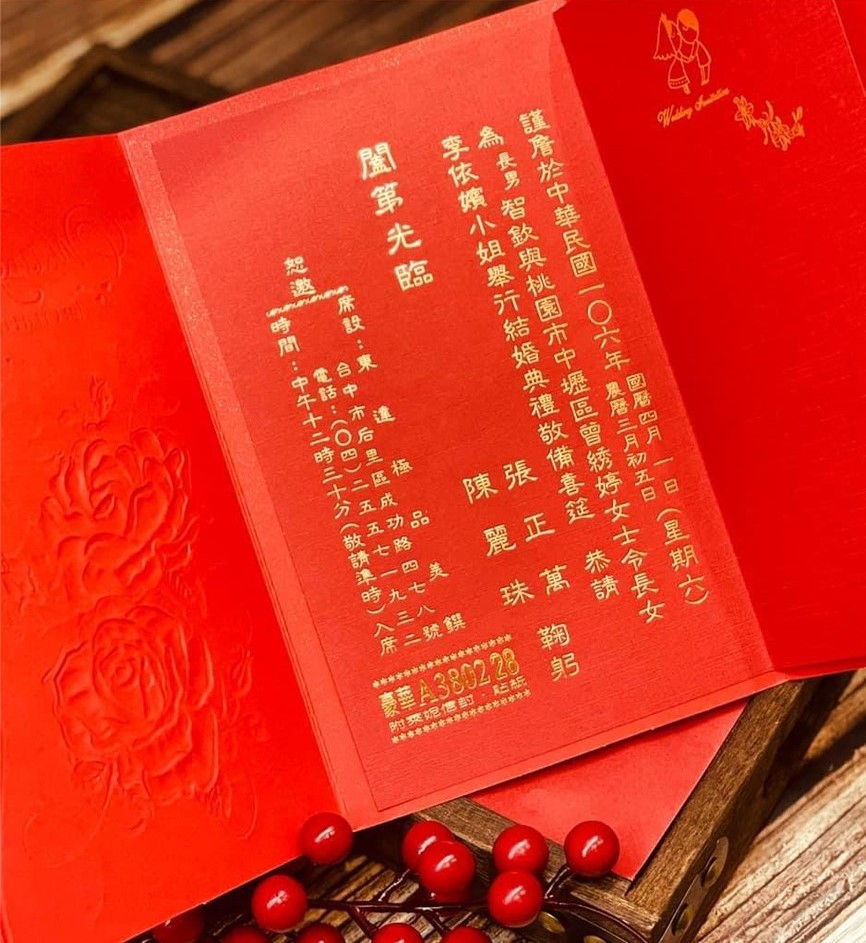 Wedding Invitation
謹詹於中華民國一〇六年國曆四月一日(星期六)
農曆三月初五日
為長男智欽與桃園市中壢區曾綉婷女士令長女
李依嬪小姐舉行結婚典禮敬備喜筵 恭請
闔第光臨
張正萬
陳麗珠
鞠躬
席設:東達極品美饌
台中市后里區成功路四七八號
電話:(〇四)二五五七一九三二
恕邀
時間:中午十二時三十分(敬請準時)入席
豪華A380228